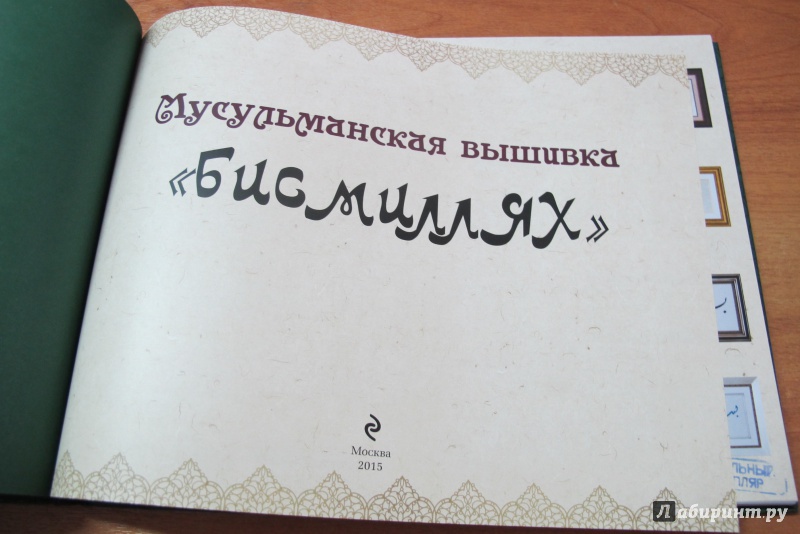 Мусульманская вышивка
«БИСМИЛЛЯХ»
Москва
2015
Лабиринт.ру